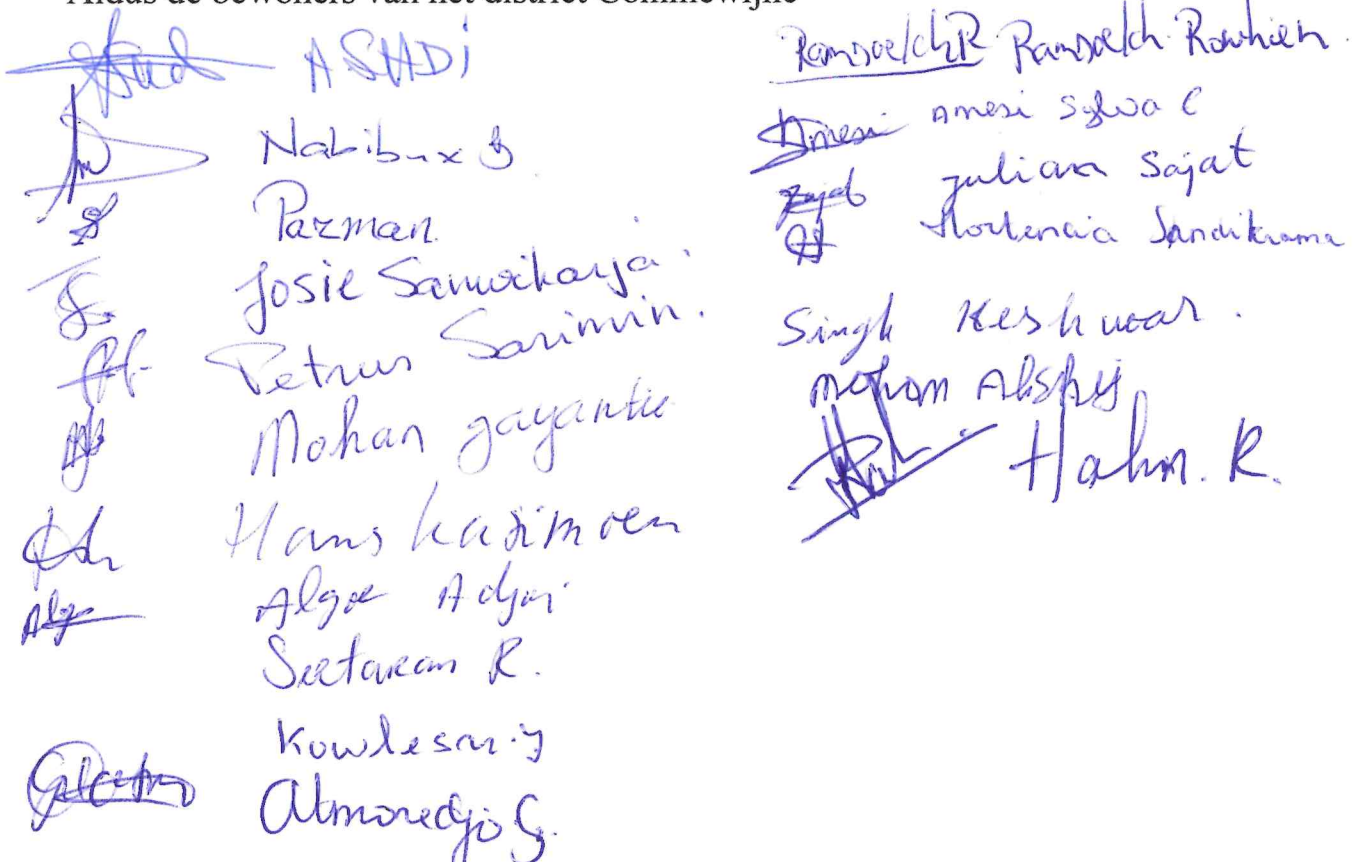 Aldus de bewoners van het district Commewijne
ASHDi
Nabibux J
Pazman
Josie Sanwikarja.
Petrus Sarimin.
Mohan gayantie
Hans kasimoen
Algoe Adjai
Seetaram R.
Kowlesar.y
Atmoredjo G.
Ramsoelch R Ramsoelch Rowhien.
Amesi Amesi Sylva C
Sajat Juliana Sajat
Hortencia Sandikrama
Singh Keshwar.
Mohan
Halm. R.